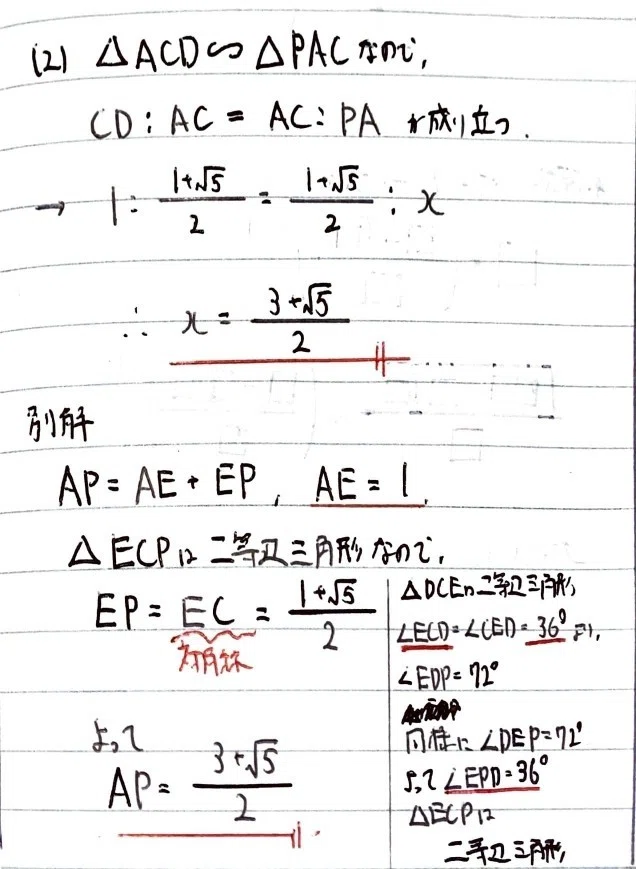 (2) △ACD∽△PACなので,
CD : AC = AC : PA が成り立つ.
→ 1 : (1+√5)/2 = (1+√5)/2 : x
∴ x = (3+√5)/2
別解
AP = AE + EP , AE = 1 ,
△ECPは二等辺三角形なので,
EP = EC = (1+√5)/2
対角線
よって
AP = (3+√5)/2
△DCEは二等辺三角形,
∠ECD = ∠CED = 36° より,
∠EDP = 72°
同様に ∠DEP = 72°
よって ∠EPD = 36°
△ECPは
二等辺三角形,